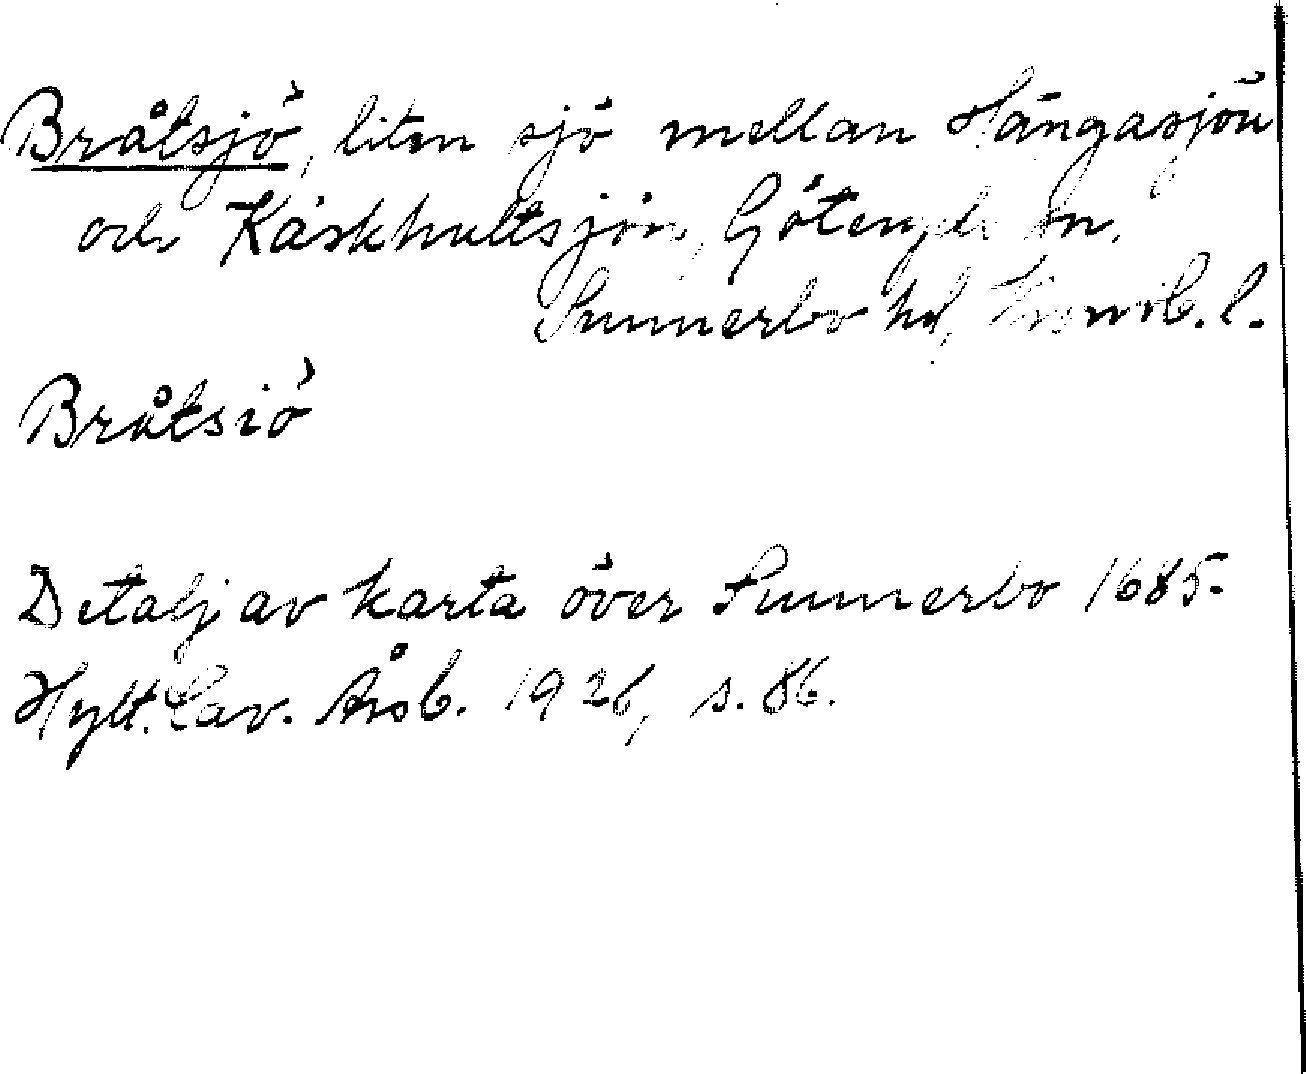 Bråtsjö, liten sjö mellan Hängasjön
och Käskhultsjön, Göteryds sn,
Sunnerbo hd, Kronob. l.
Bråtsiö
Detalj av karta över Sunnerbo 1685.
Hylt. Cav. Årsb. 1926, s. 86.